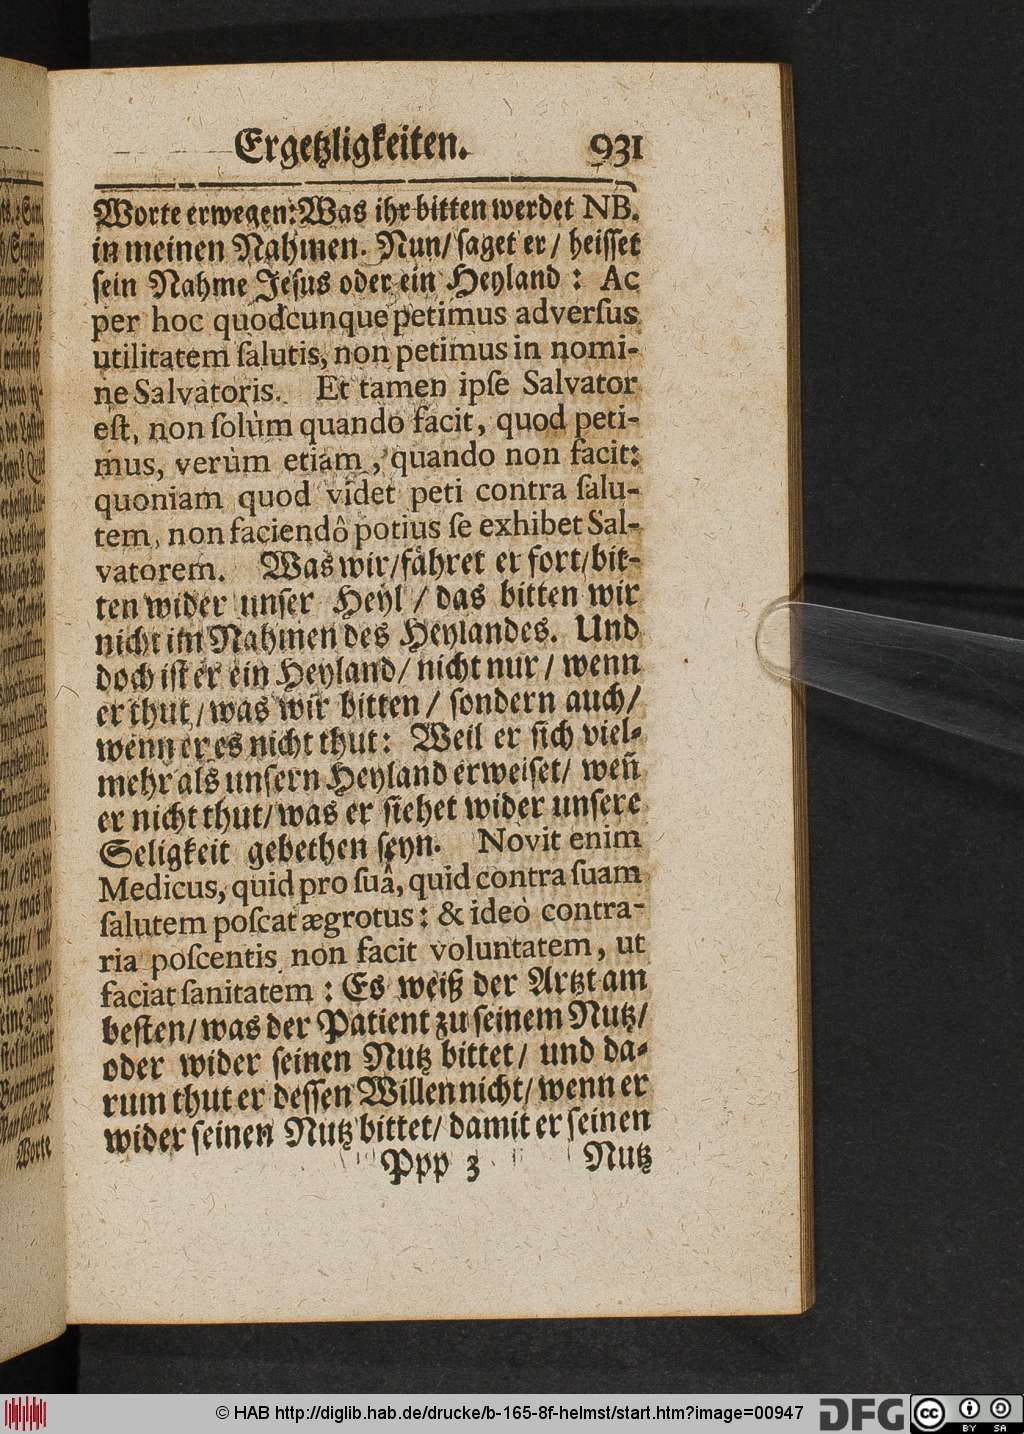 Ergetzligkeiten. 931
Worte erwegen: Was ihr bitten werdet NB.
in meinen Nahmen. Nun/ saget er/ heisset
sein Nahme Jesus oder ein Heyland: Ac
per hoc quodcunque petimus adverſus
utilitatem ſalutis, non petimus in nomi-
ne Salvatoris. Et tamen ipſe Salvator
eſt, non ſolùm quando facit, quod peti-
mus, verùm etiam, quando non facit:
quoniam quod videt peti contra ſalu-
tem, non faciendô potius ſe exhibet Sal-
vatorem. Was wir/ fähret er fort/ bit-
ten wider unser Heyl/ das bitten wir
nicht im Nahmen des Heylandes. Und
doch ist er ein Heyland/ nicht nur/ wenn
er thut/ was wir bitten/ sondern auch/
wenn er es nicht thut: Weil er sich viel-
mehr als unsern Heyland erweiset/ weñ
er nicht thut/ was er siehet wider unsere
Seligkeit gebethen seyn. Novit enim
Medicus, quid pro ſuâ, quid contra ſuam
ſalutem poſcat ægrotus: & ideò contra-
ria poſcentis non facit voluntatem, ut
faciat ſanitatem: Es weiß der Artzt am
besten/ was der Patient zu seinem Nutz/
oder wider seinen Nutz bittet/ und da-
rum thut er dessen Willen nicht/ wenn er
wider seinen Nutz bittet/ damit er seinen
Ppp 3 Nutz
Worte
© HAB http://diglib.hab.de/drucke/b-165-8f-helmst/start.htm?image=00947
DFG
cc BY SA